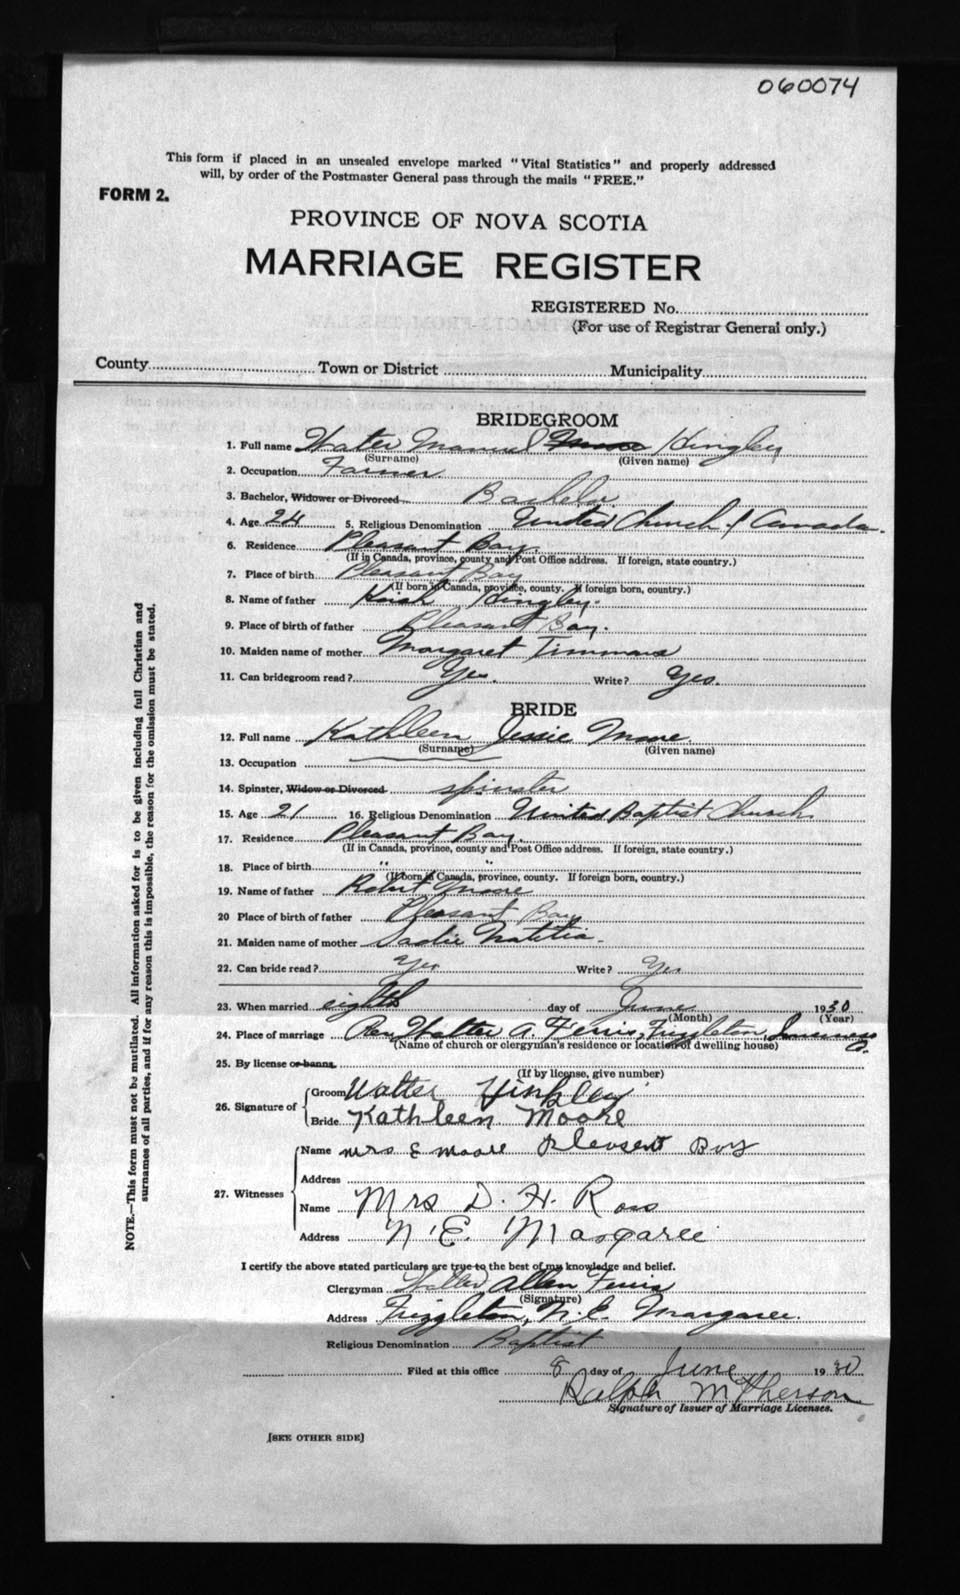 060074
This form if placed in an unsealed envelope marked "Vital Statistics" and properly addressed
will, by order of the Postmaster General pass through the mails "FREE."
FORM 2.
PROVINCE OF NOVA SCOTIA
MARRIAGE REGISTER
REGISTERED No.
(For use of Registrar General only.)
County Town or District Municipality
BRIDEGROOM
1. Full name Walter Manuel Hingley
(Surname) (Given name)
2. Occupation Farmer.
3. Bachelor, Widower or Divorced Bachelor
4. Age 24 5. Religious Denomination United Church of Canada.
6. Residence Pleasant Bay.
(If in Canada, province, county and Post Office address. If foreign, state country.)
7. Place of birth Pleasant Bay
(If born in Canada, province, county. If foreign born, country.)
8. Name of father Hingley.
9. Place of birth of father Pleasant Bay.
10. Maiden name of mother Margaret Timmons
11. Can bridegroom read? Yes. Write? Yes.
BRIDE
12. Full name Kathleen Jessie Moore
(Surname) (Given name)
13. Occupation
14. Spinster, Widow or Divorced spinster
15. Age 21 16. Religious Denomination United Baptist Church
17. Residence Pleasant Bay.
(If in Canada, province, county and Post Office address. If foreign, state country.)
18. Place of birth " "
(If born in Canada, province, county. If foreign born, country.)
19. Name of father Robert Moore
20 Place of birth of father Pleasant Bay
21. Maiden name of mother Sadie
22. Can bride read? Yes Write? Yes
23. When married eighth day of June 1930
(Month) (Year)
24. Place of marriage Rev. Walter A. Ferris, Frizzleton, Inverness Co.
(Name of church or clergyman's residence or location of dwelling house)
25. By license or banns.
(If by license, give number)
26. Signature of Groom Walter Hinkley
Bride Kathleen Moore
27. Witnesses Name Mrs E Moore Pleasent Boy
Address
Name Mrs D. H. Ross
Address N.E. Margaree
I certify the above stated particulars are true to the best of my knowledge and belief.
Clergyman Walter Allen Ferris
(Signature)
Address Frizzleton, N.E. Margaree.
Religious Denomination Baptist
Filed at this office 8 day of June 1930
Ralph McPherson
Signature of Issuer of Marriage Licenses.
[SEE OTHER SIDE]
NOTE.—This form must not be mutilated. All information asked for is to be given including full Christian and
surnames of all parties, and if for any reason this is impossible, the reason for the omission must be stated.